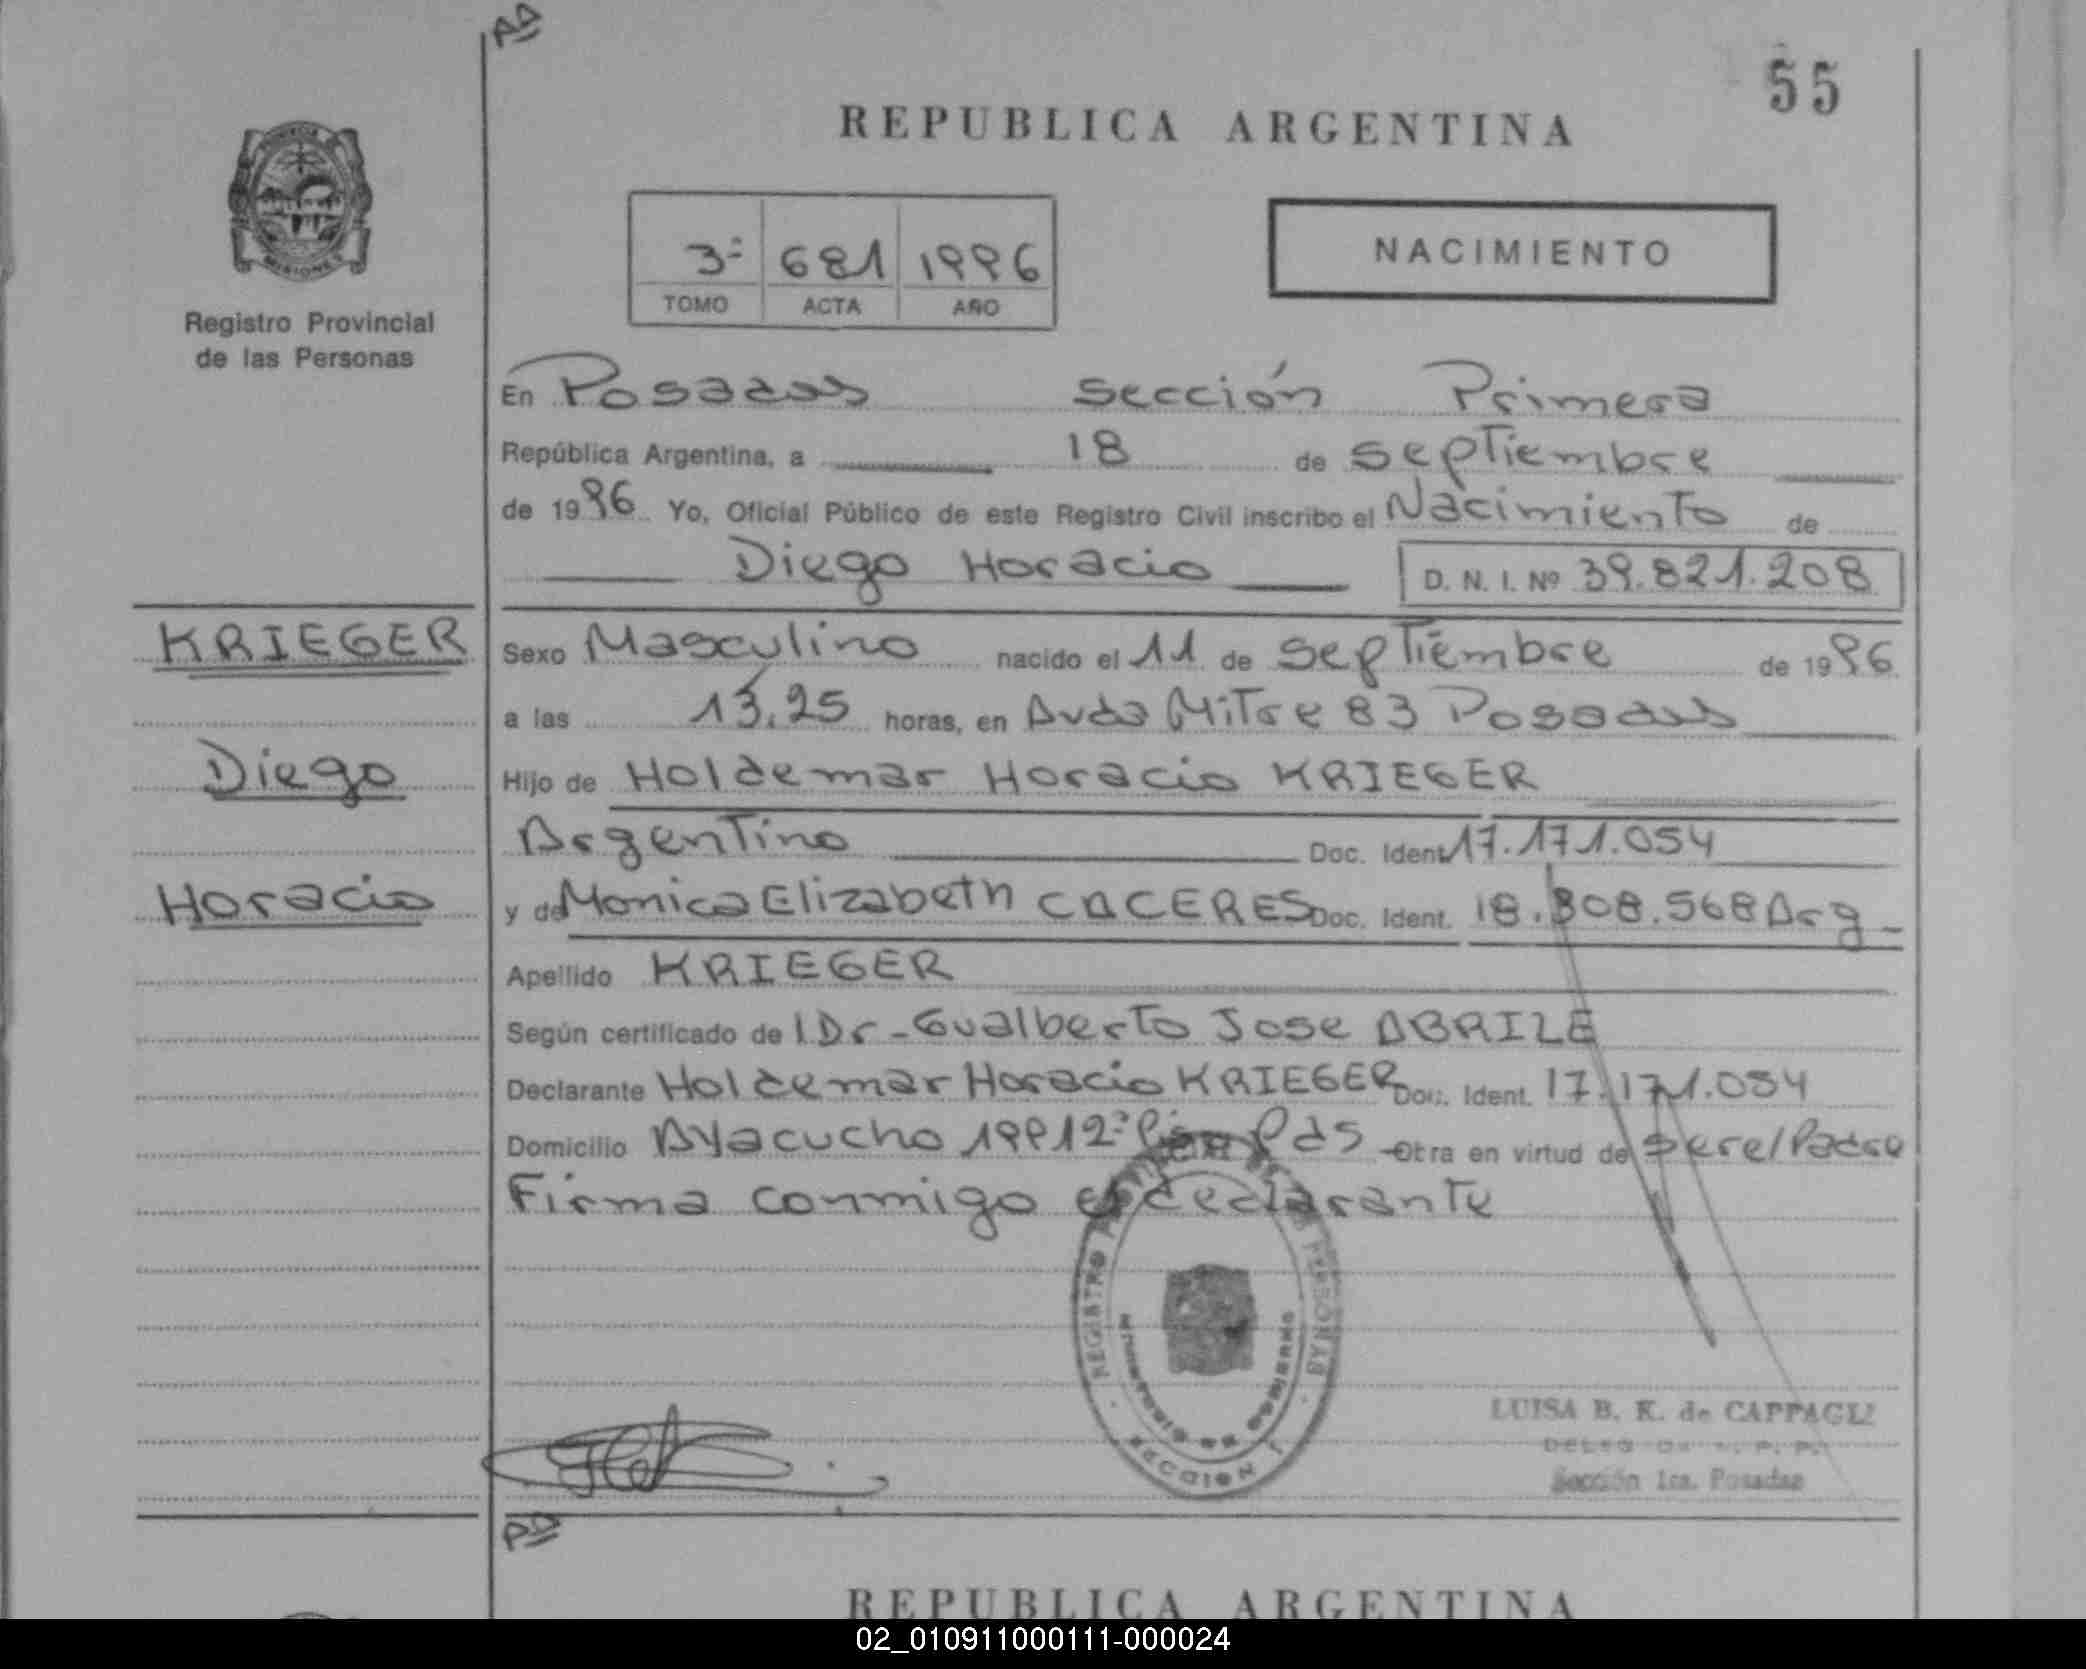 AD
55
REPUBLICA ARGENTINA
MISIONES
3º 681 1996
TOMO ACTA AÑO
NACIMIENTO
Registro Provincial
de las Personas
En Posadas sección Primera
República Argentina, a 18 de septiembre
de 1996 Yo, Oficial Público de este Registro Civil inscribo el Nacimiento de
Diego Horacio D. N. I. Nº 39.821.208
KRIEGER
Diego
Horacio
Sexo Masculino nacido el 11 de septiembre de 1996
a las 13,25 horas, en Avda Mitre 83 Posadas
Hijo de Holdemar Horacio KRIEGER
Argentino Doc. Ident. 17.171.054
y de Monica Elizabeth CACERES Doc. Ident. 18.808.568 Arg
Apellido KRIEGER
Según certificado de l Dr- Gualberto Jose ABRILE
Declarante Holdemar Horacio KRIEGER Doc. Ident. 17.171.054
Domicilio Ayacucho Pds Obra en virtud de Padre
Firma conmigo el declarante
REGISTRO PERSONAS
MINISTERIO DE GOBIERNO
SECCION 1
LUISA B. K. de CAPPAGLI
Sección 1ra. Posadas
REPUBLICA ARGENTINA
02_010911000111-000024